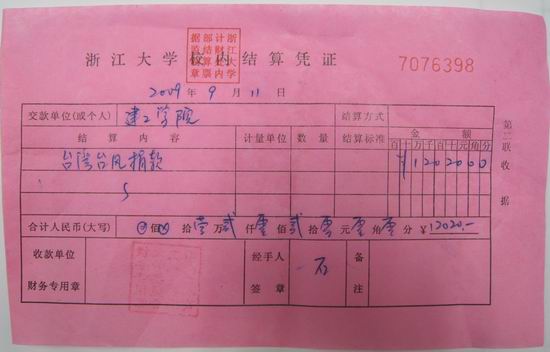 浙江大学校内结算凭证
7076398
2009年9月11日
交款单位(或个人) 建工学院 结算方式
结算内容 计量单位 数量 结算标准 金额
百十万千百十元角分
台湾台风捐款 ¥1202000
合计人民币(大写) 佰拾壹万贰仟零佰贰拾零元零角零分 ¥12020.-
收款单位
财务专用章
经手人
签章
石
备注
第二联收据